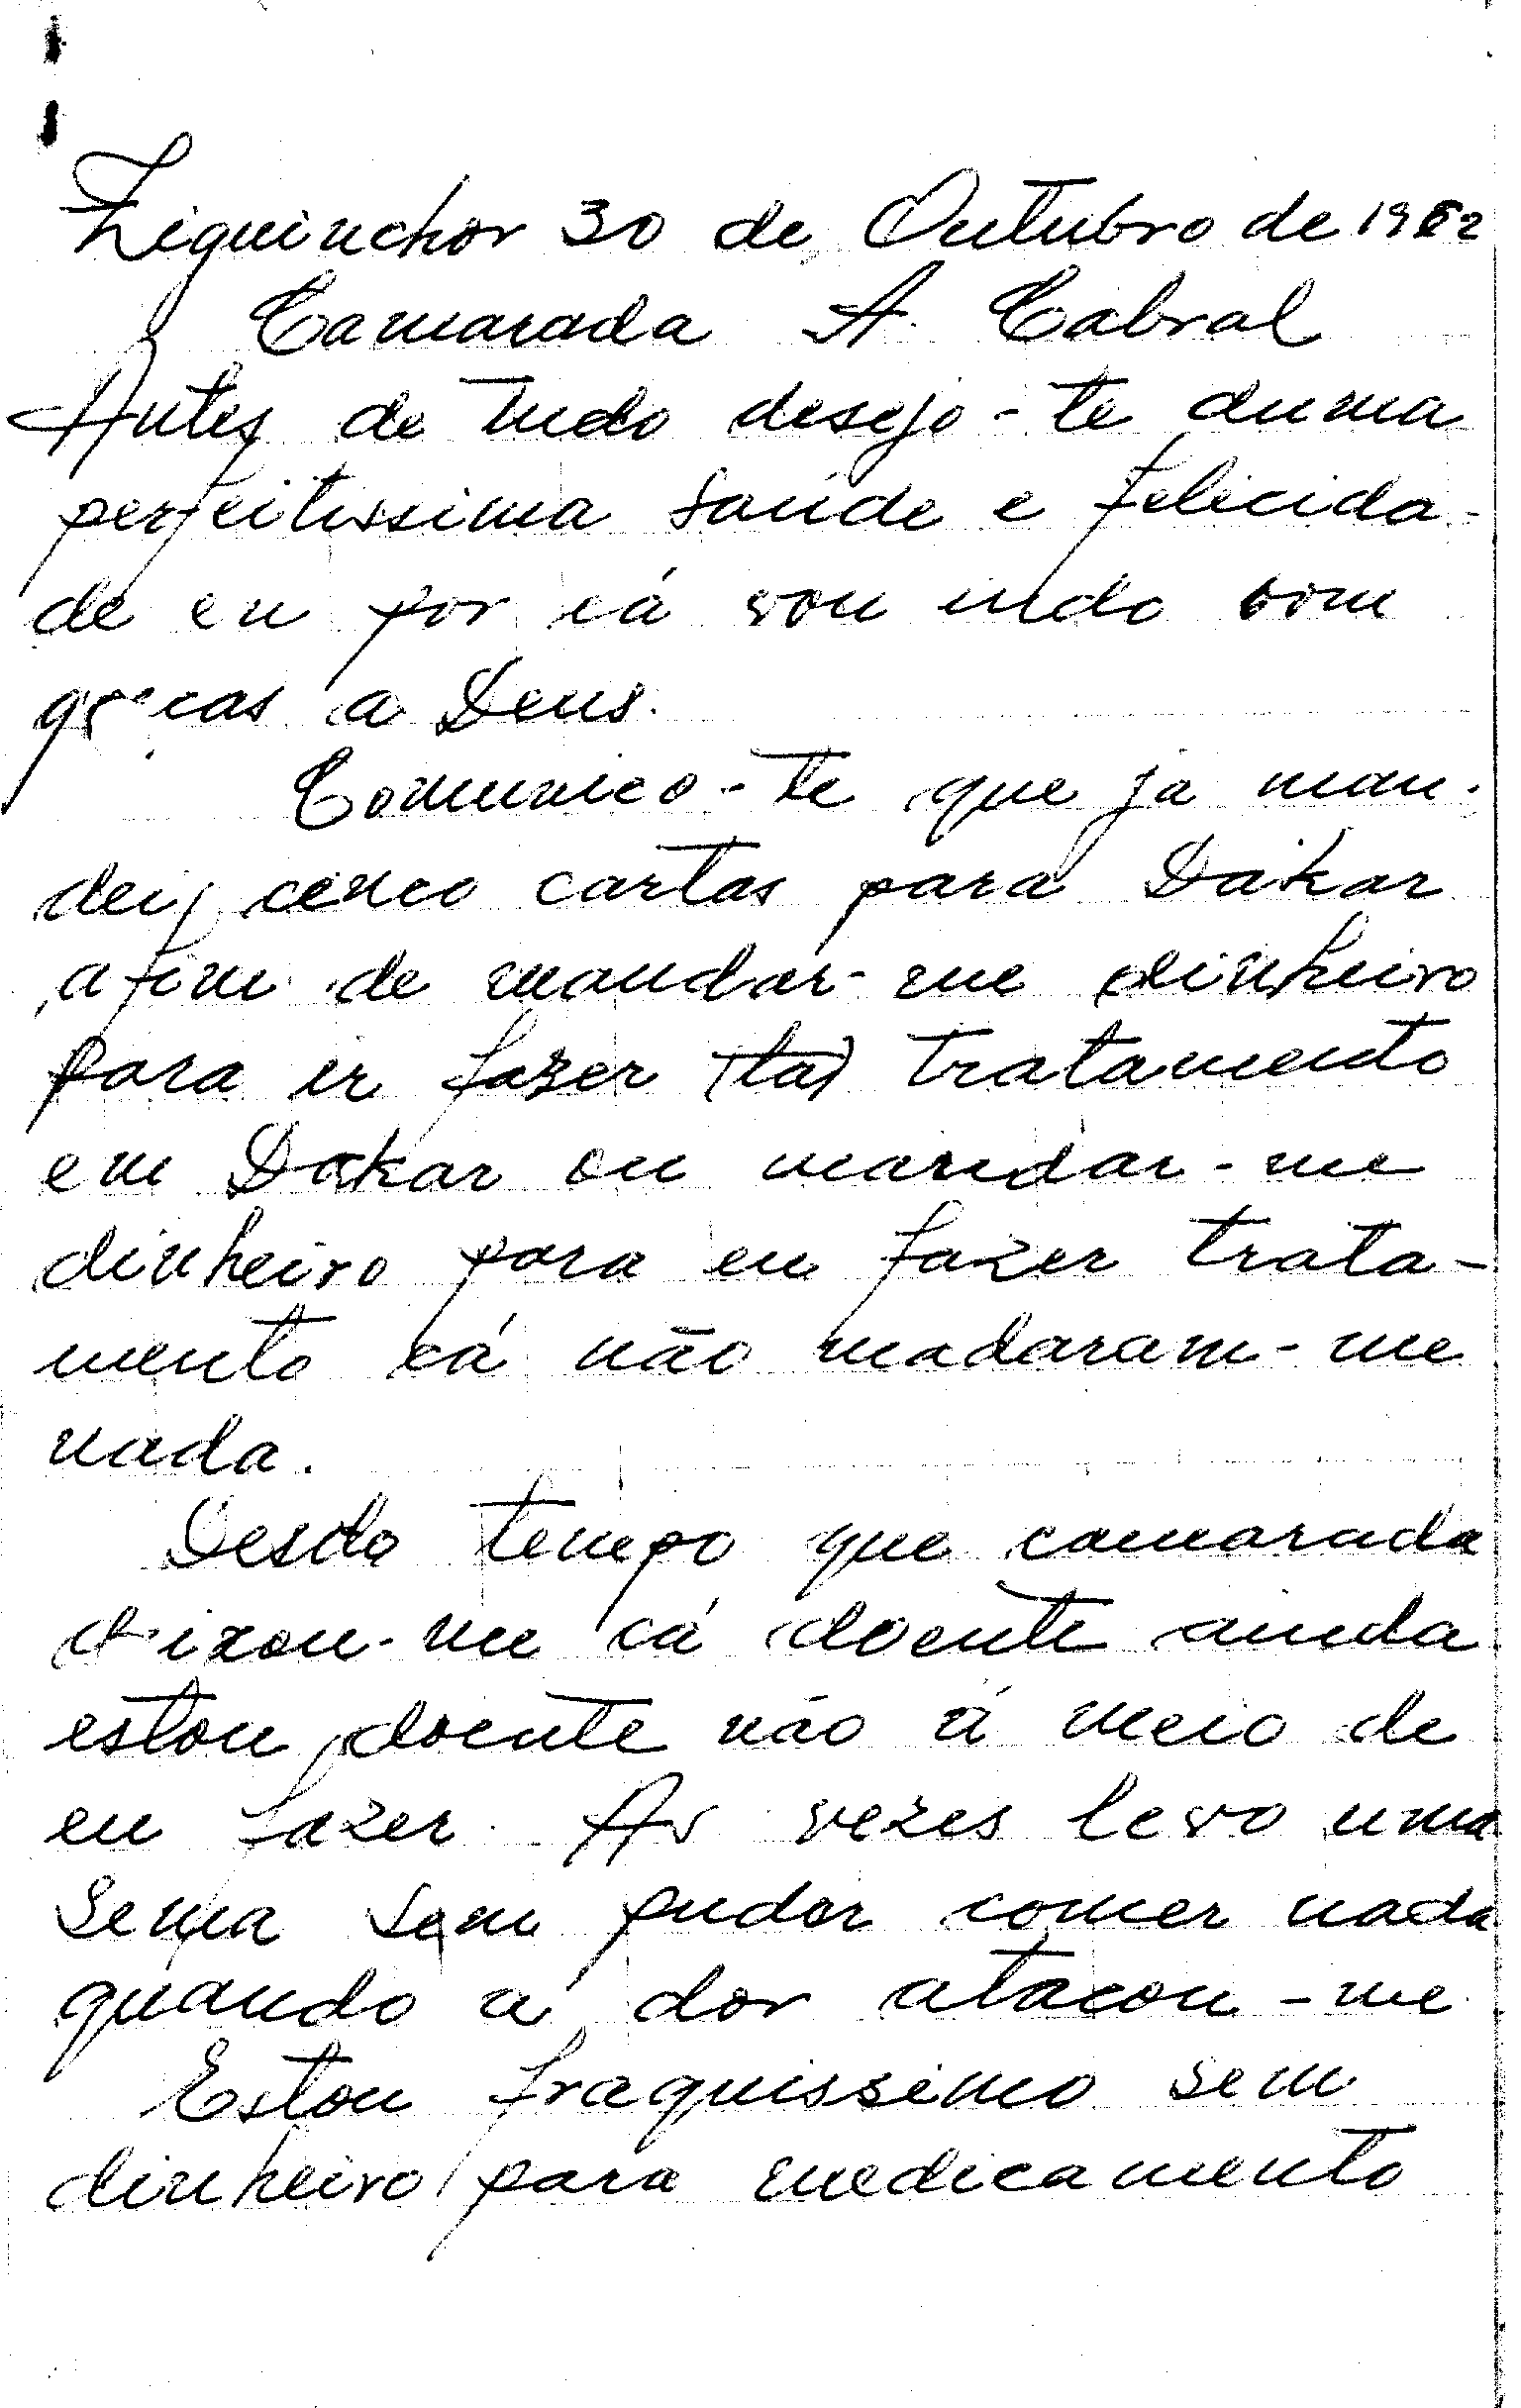 Ziquinchor 30 de Outubro de 1962
Camarada A. Cabral
Antes de tudo desejo-te duma
perfeitissima saúde e felicida-
de eu por cá vou indo bom
gracas a Deus.
Comunico-te que ja man-
dei cinco cartas para Dakar
afim de mandar-me dinheiro
para ir fazer (ta) tratamento
em Dakar ou mandar-me
dinheiro para eu fazer trata-
mento cá não madaram-me
nada.
Desdo tempo que camarada
deixou-me cá doente ainda
estou doente não á meio de
eu fazer. As vezes levo uma
sema sem puder comer nada
quando a dor atacou-me
Estou fraquissimo sem
dinheiro para medicamento